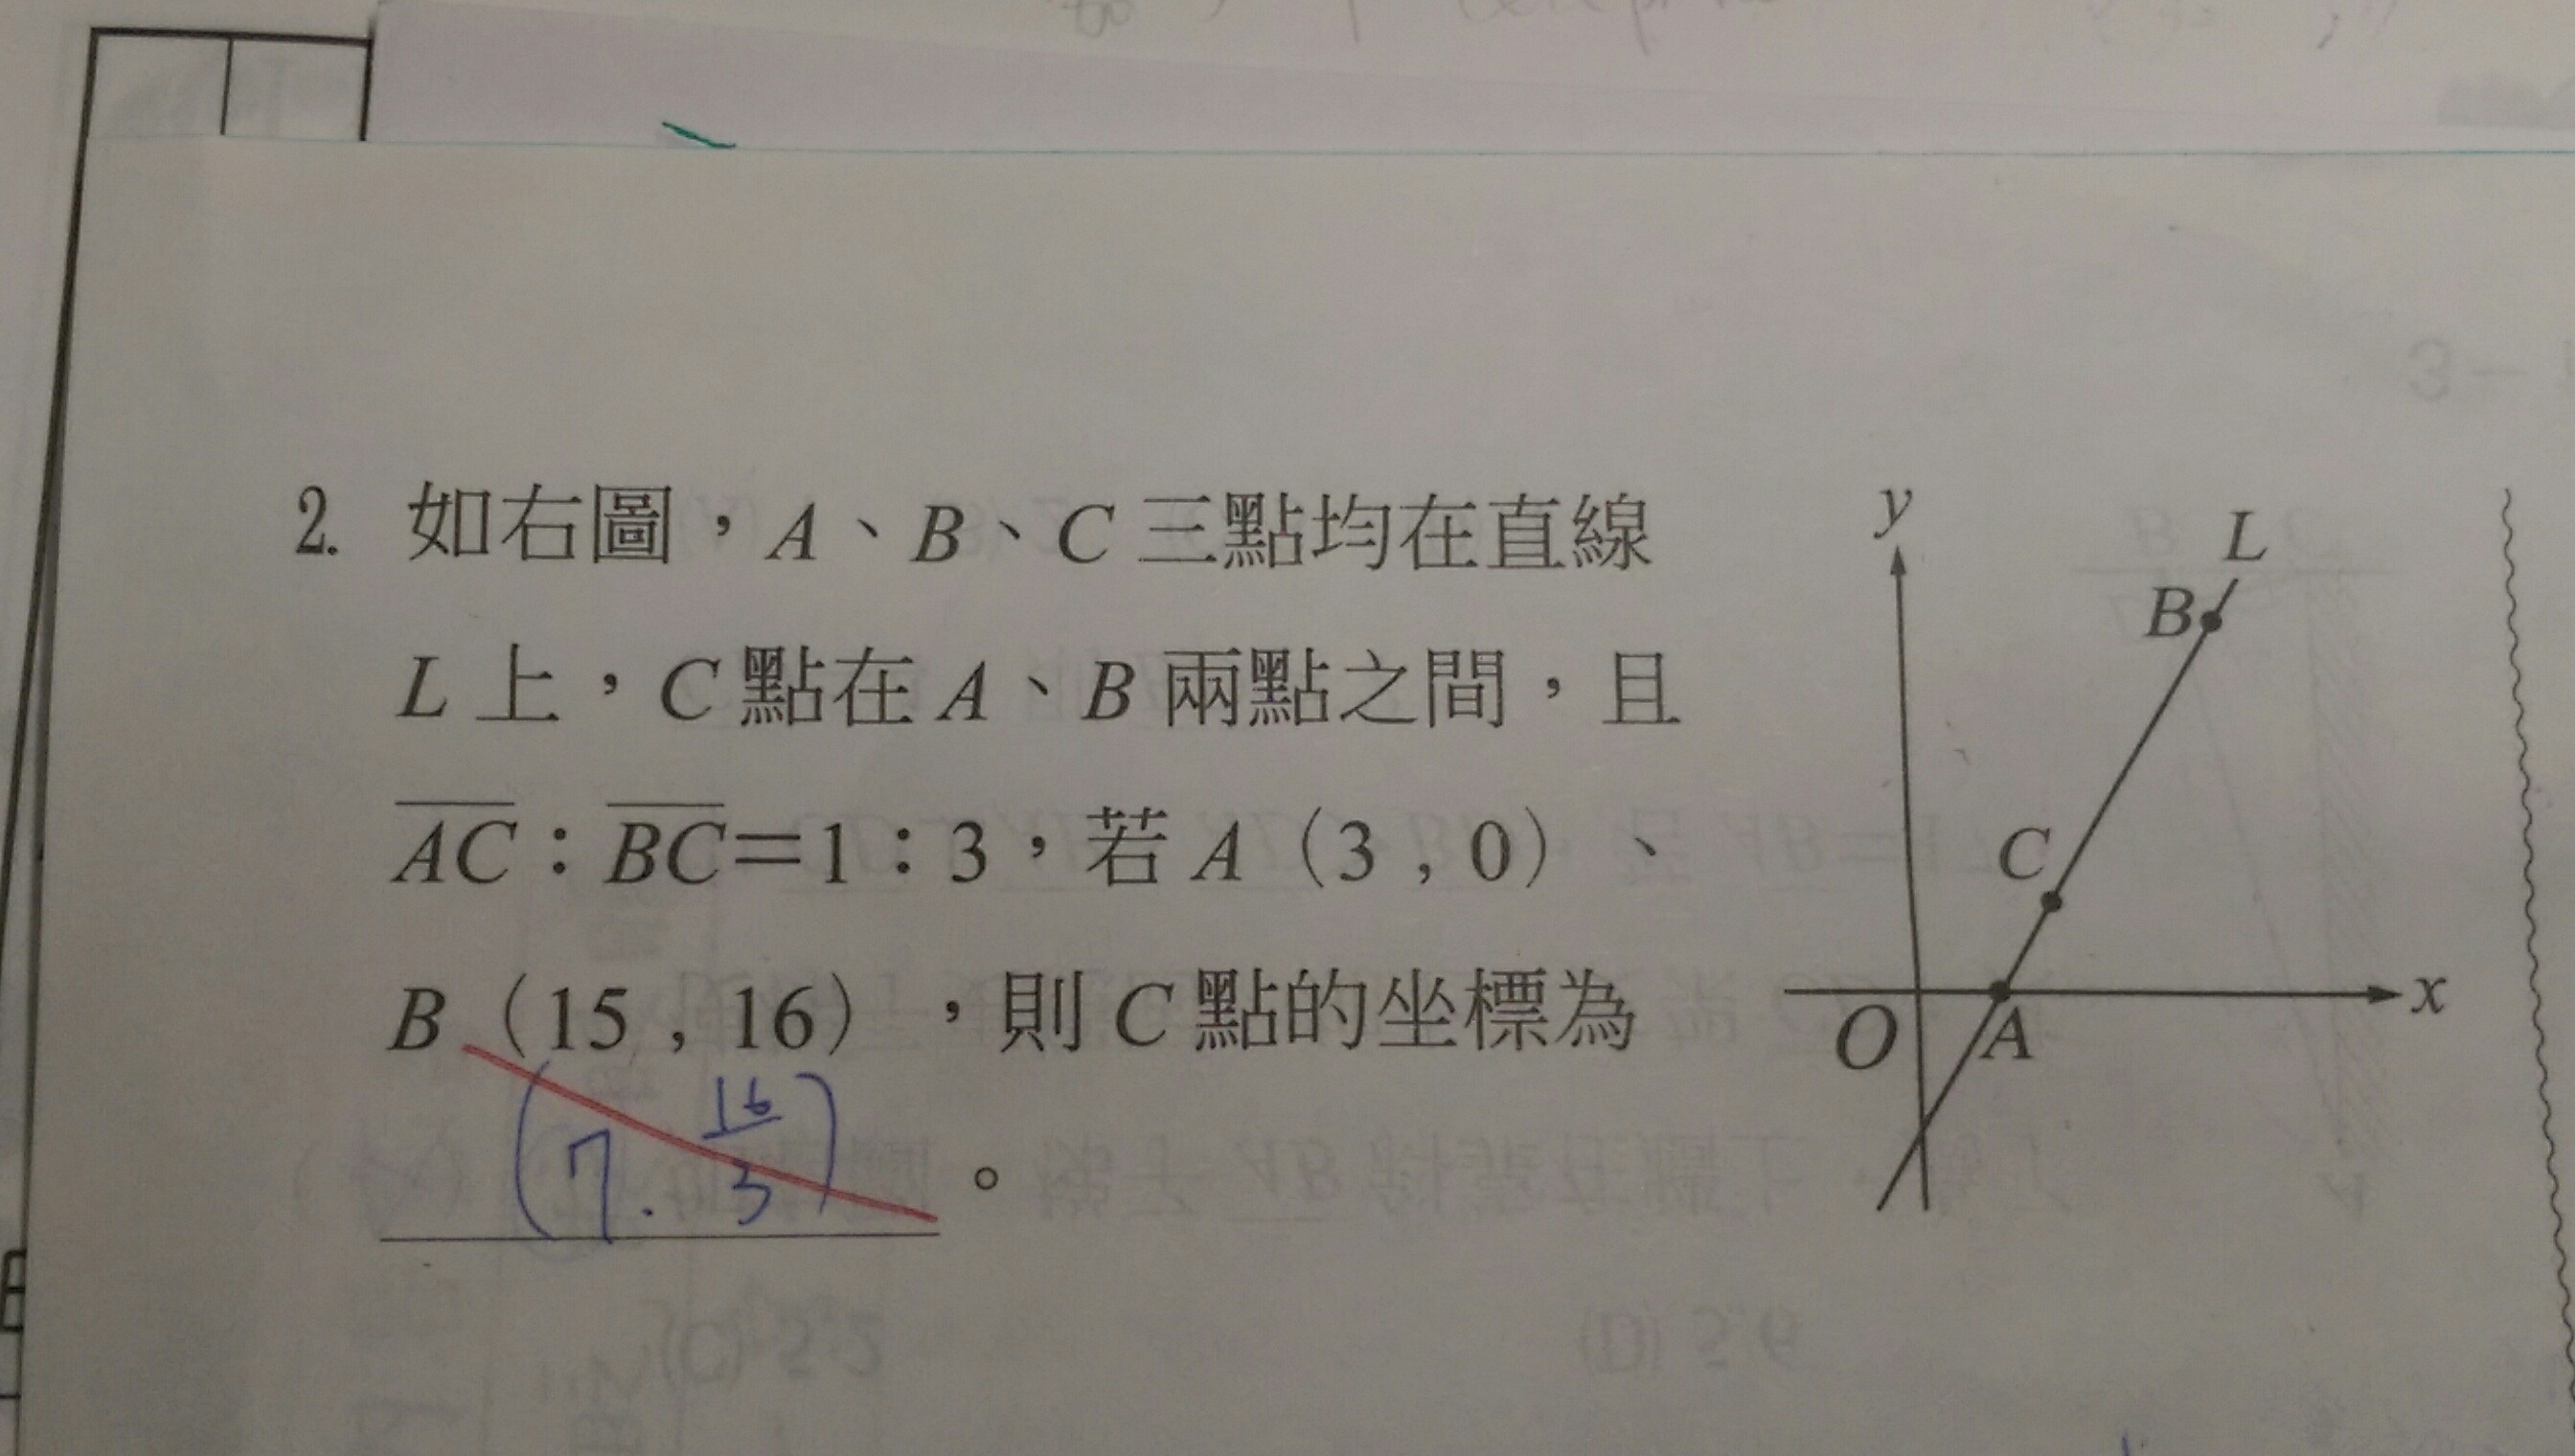 2. 如右圖，A、B、C 三點均在直線
L 上，C 點在 A、B 兩點之間，且
AC：BC＝1：3，若 A（3 , 0）、
B（15 , 16），則 C 點的坐標為
(7. 16/3) 。
y
L
B
C
x
O
A